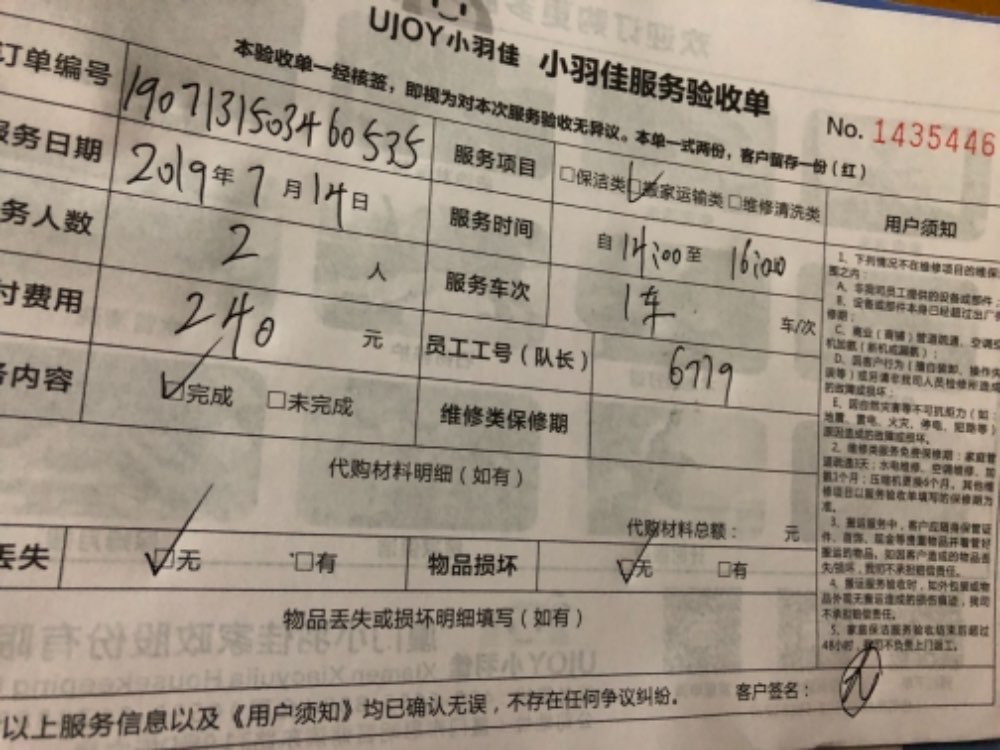 UJOY小羽佳 小羽佳服务验收单
本验收单一经核签，即视为对本次服务验收无异议。本单一式两份，客户留存一份（红）
No. 1435446
订单编号 190713150346 0535 服务项目 □保洁类 ☑搬家运输类 □维修清洗类
服务日期 2019年7月14日 服务时间 自14:00至16:00
务人数 2人 服务车次 1车 车/次
付费用 240元 员工工号（队长） 6779
务内容 ☑完成 □未完成 维修类保修期
代购材料明细（如有）
代购材料总额： 元
丢失 ☑无 □有 物品损坏 ☑无 □有
物品丢失或损坏明细填写（如有）
以上服务信息以及《用户须知》均已确认无误，不存在任何争议纠纷。 客户签名：
用户须知
1、下列情况不在维修项目的维保
围之内：
A、非我司员工提供的设备或部件
B、设备或部件本身已经超过出厂
修期；
C、商业（商铺）管道疏通、空调
机加氨（新机或漏氨）；
D、因客户行为（擅自装卸、操作失
误等）或另请非我司人员检修所造成
的故障或损坏；
E、因自然灾害等不可抗拒力（如：
地震、雷电、火灾、停电、短路等）
原因造成的故障或损坏。
2、维修类服务免费保修期：家庭管
道疏通3天；水电维修、空调维修、加
氨3个月；压缩机更换6个月。其他维
修项目以服务验收单填写的保修期为
准。
3、搬运服务中，客户应随身保管证
件、首饰、现金等贵重物品并看管好
搬运的物品，如因客户造成的物品丢
失/损坏，我司不承担赔偿责任。
4、搬运服务验收时，如外包装或物
品外观无搬运造成的损伤痕迹，我司
不承担赔偿责任。
5、家庭保洁服务验收结束后超过
48小时，我司不负责上门返工。